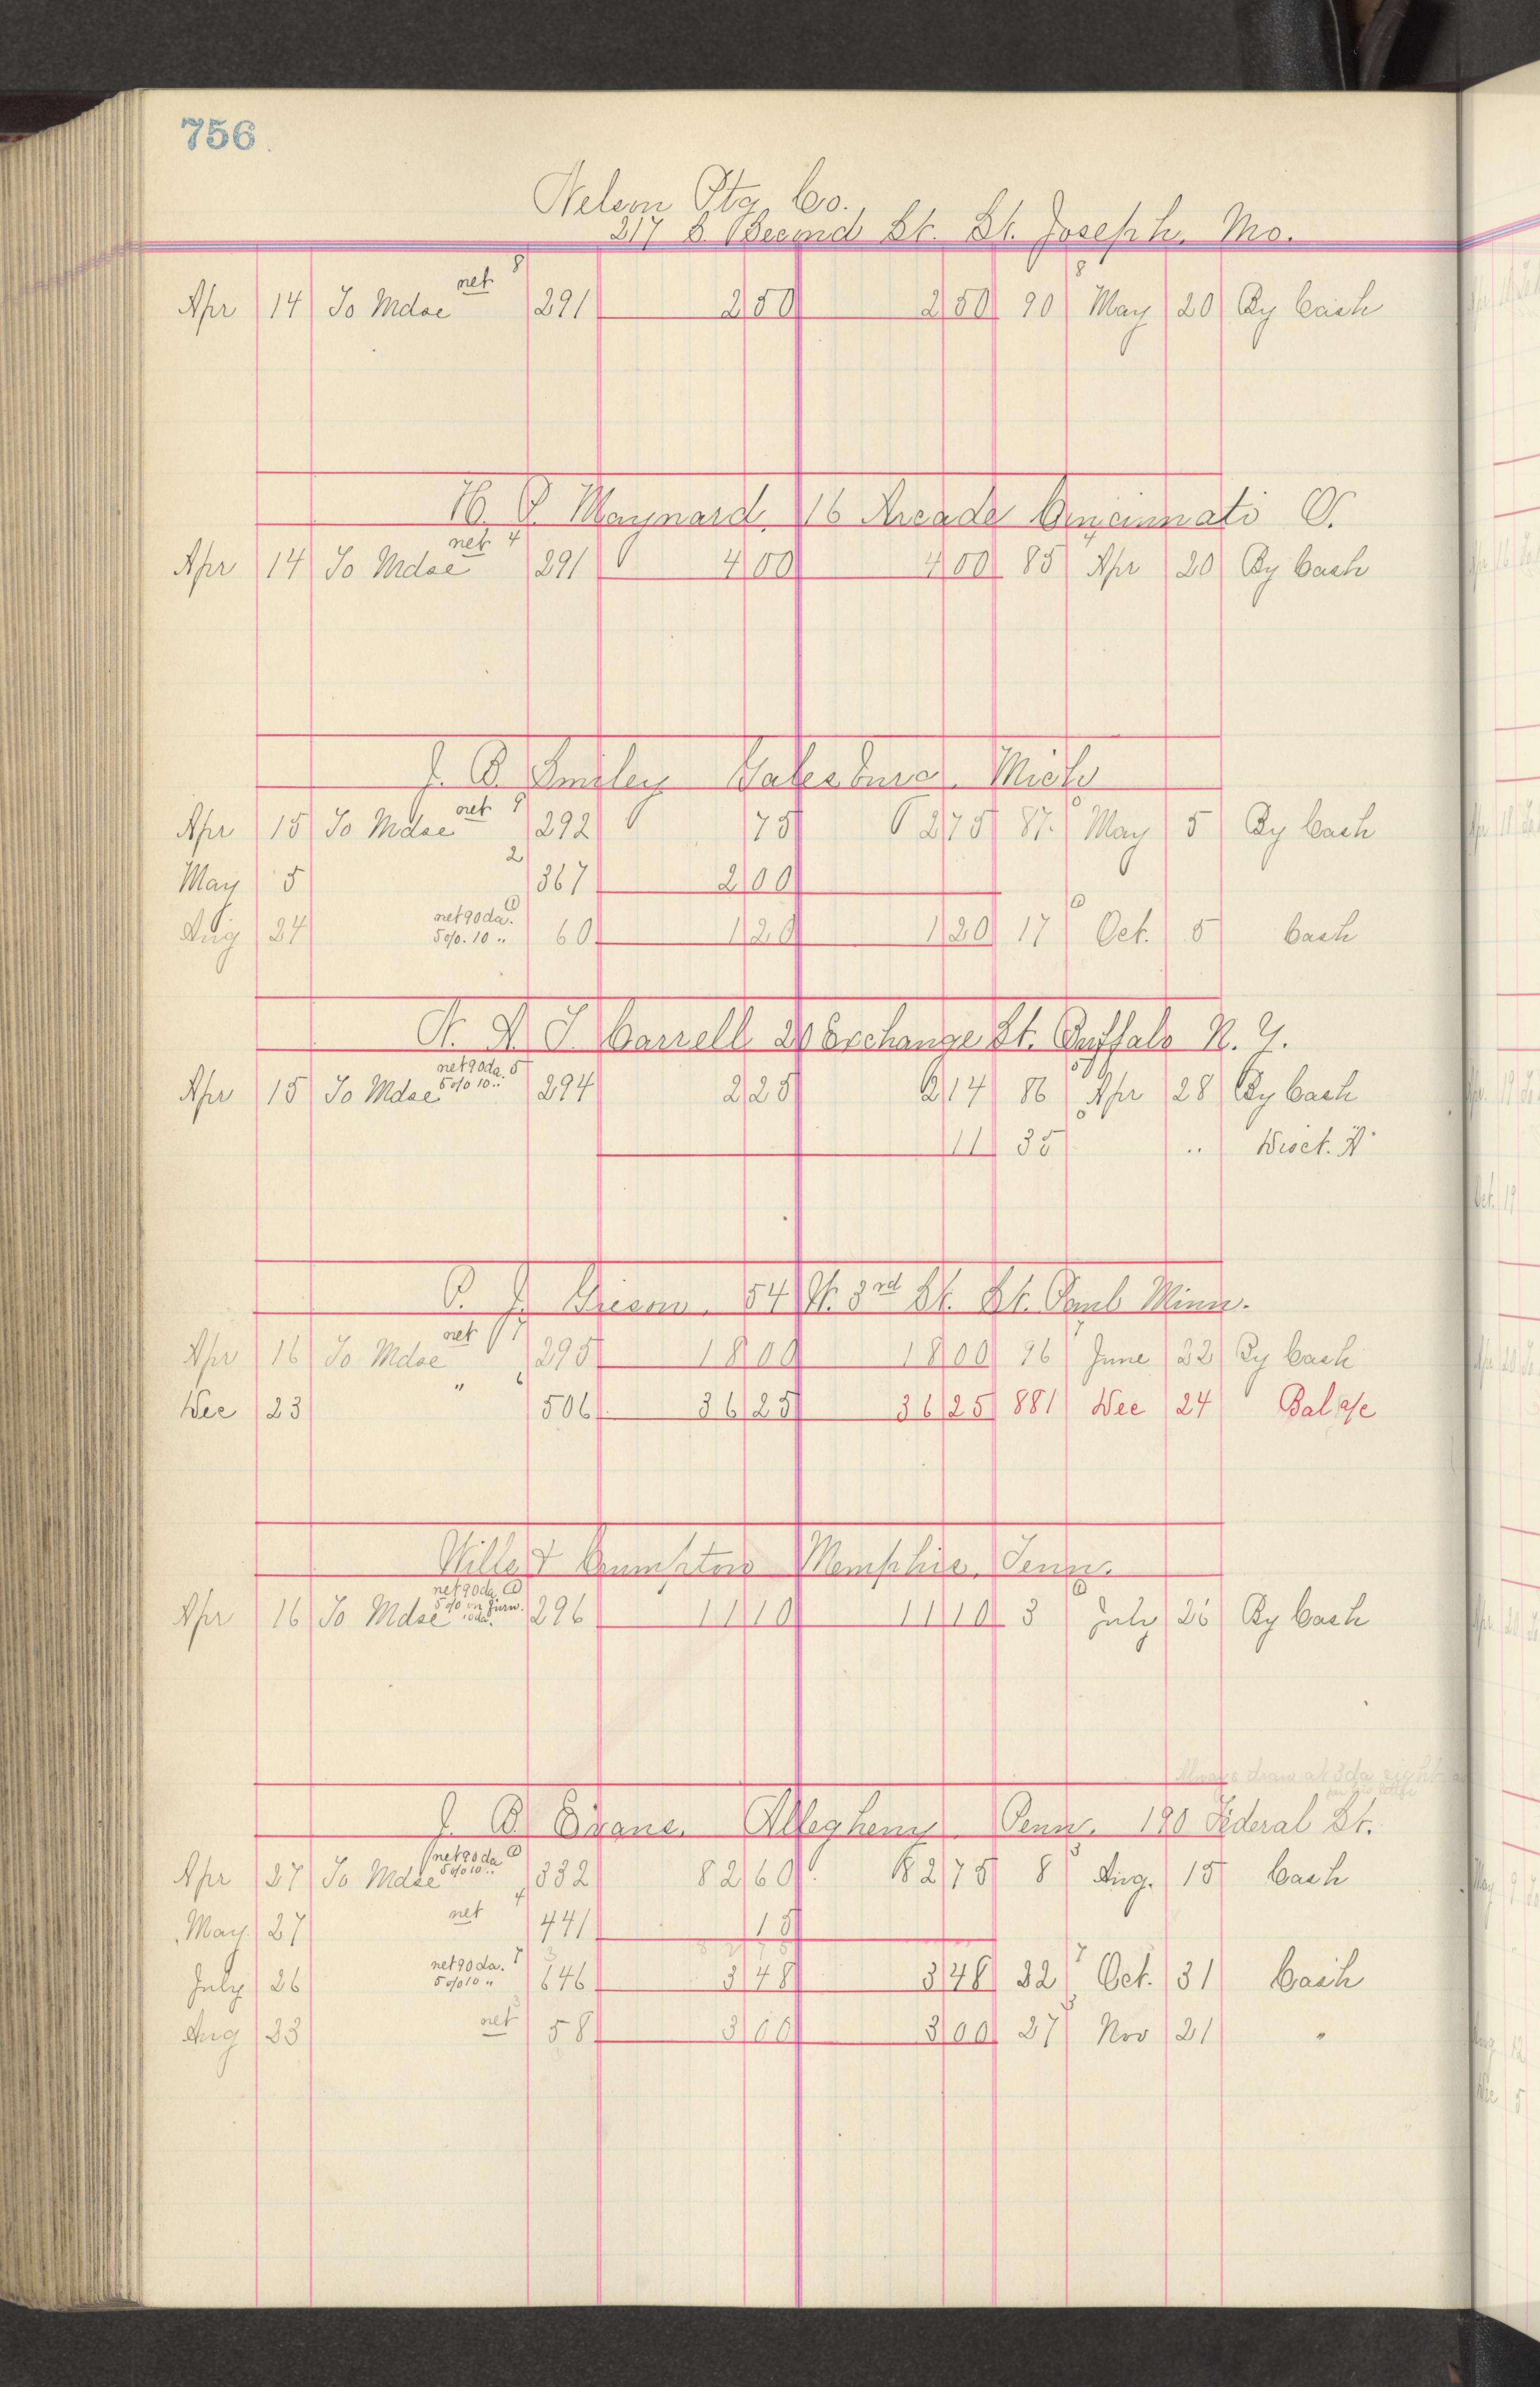 756
Nelson Ptg. Co.
217 S. Second St. St. Joseph. Mo.
Apr 14 To Mdse net 8 291 2 50 2 50 90 8 May 20 By Cash
H. P. Maynard. 16 Arcade Cincinnati O.
Apr 14 To Mdse net 4 291 4 00 4 00 85 4 Apr 20 By Cash
J. B. Smiley Galesburg. Mich
Apr 15 To Mdse net 9 292 75 2 75 87. 6 May 5 By Cash
May 5 2 367 2 00
Aug 24 net 90 da. 5%. 10 " 60 1 20 1 20 17 Oct. 5 Cash
Carrell Exchange St. Buffalo N. Y.
Apr 15 To Mdse net 90 da. 5 5% 10 " 294 2 25 2 14 86 Apr 28 By Cash
11 35 " Disct.
P. J. 54 W. 3rd St. St. Paul Minn.
Apr 16 To Mdse net 295 18 00 18 00 96 June 22 By Cash
Dec 23 " 6 506 36 25 36 25 881 Dec 24 Bal a/c
Wills & Crumpton Memphis, Tenn.
Apr 16 To Mdse net 90 da 5% on Furn. 10 da. 296 11 10 11 10 3 July 26 By Cash
Always draw at 3 da sight
J. B. Evans. Allegheny. Penn. 190 Federal St.
Apr 27 To Mdse net 90 da 5% 10 " 332 82 60 82 75 8 Aug. 15 Cash
May 27 net 4 441 15
July 26 net 90 da. 7 5% 10 " 646 3 48 3 48 32 7 Oct. 31 Cash
Aug 23 net 58 3 00 3 00 27 Nov 21 "